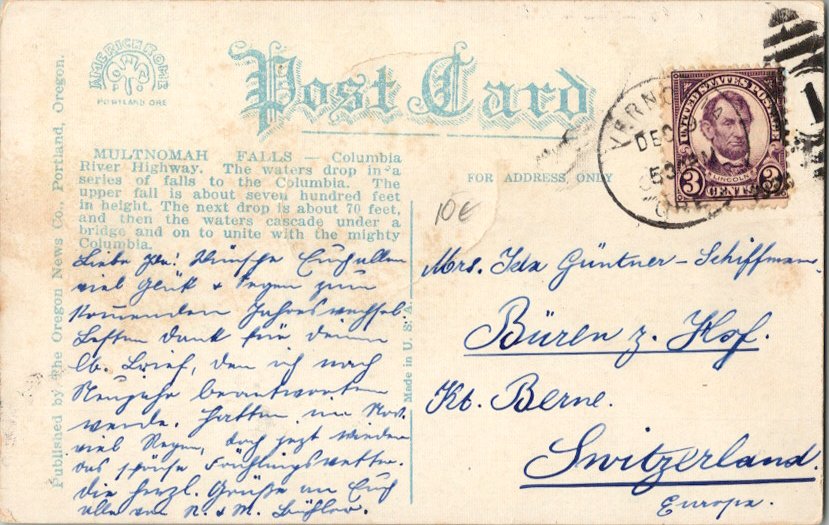 AMERICHROME
PORTLAND ORE
Post Card
UNITED STATES POSTAGE
LINCOLN
3 CENTS 3
VERNO
DEC
530 PM
ORE
1
MULTNOMAH FALLS — Columbia
River Highway. The waters drop in a
series of falls to the Columbia. The
upper fall is about seven hundred feet
in height. The next drop is about 70 feet,
and then the waters cascade under a
bridge and on to unite with the mighty
Columbia.
FOR ADDRESS ONLY
10€
Liebe Ida! Wünsche Euch allen
viel Glück & Segen zum
kommenden Jahreswechsel.
Besten Dank für deinen
lb. Brief, den ich nach
Neujahr beantworten
werde. Hatten im Nov.
viel Regen, doch jetzt wieder
das schönste Frühlingswetter.
Die herzl. Grüße an Euch
alle von N. & M. Bühler.
Mrs. Ida Güntner-Schiffmann,
Büren z. Hof.
Kt. Berne.
Switzerland.
Europa.
Published by The Oregon News Co., Portland, Oregon.
Made in U. S. A.